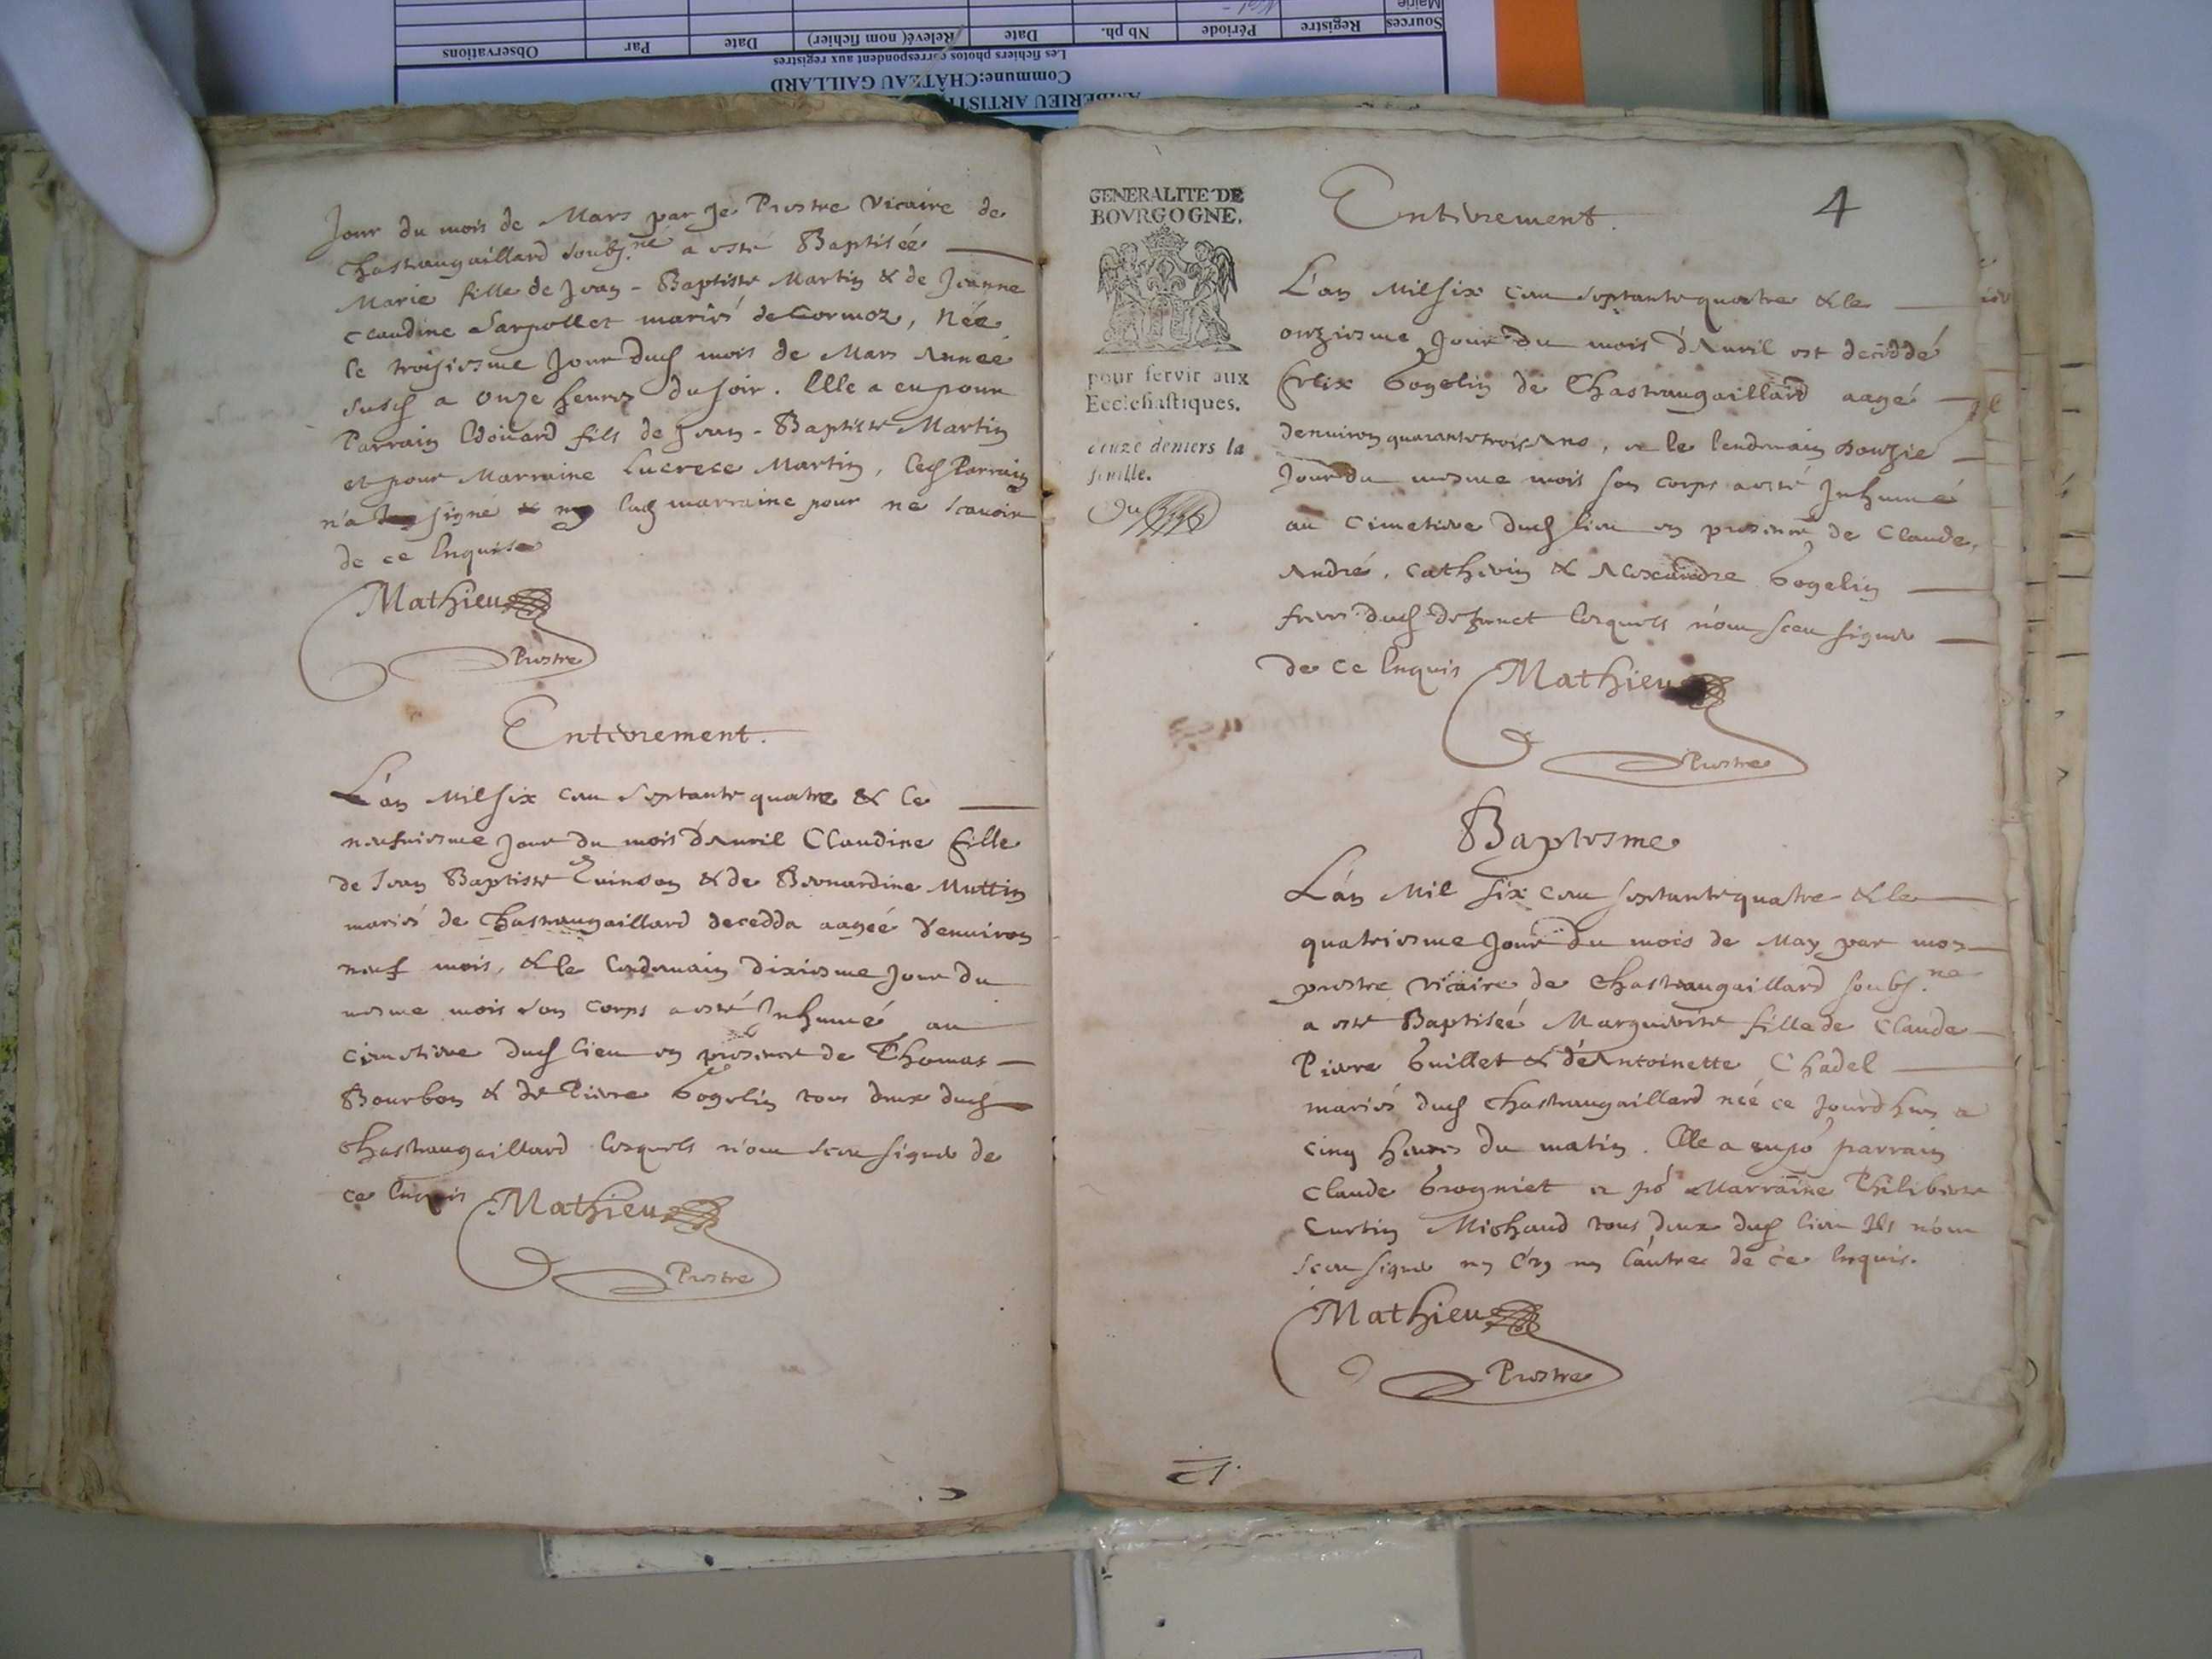 AMBERIEU ARTISTI
Commune:CHÂTEAU GAILLARD
Les fichiers photos correspondent aux registres
Sources Registre Période Nb ph. Date Relevé( nom fichier) Date Par Observations
Mairie
Jour du mois de Mars par Je Prestre Vicaire de
Chasteaugaillard soubs.né a esté Baptisée
Marie fille de Jean-Baptiste Martin & de Jeanne
Claudine Sarpollet mariés de Cormoz, Née
le troisiesme Jour dud mois de Mars Année
susd a onze heures du soir. Elle a eu pour
Parrain Edoüard fils de Jean-Baptiste Martin
et pour Marraine Lucrece Martin, led Parrain
n'a signé ny lad marraine pour ne scavoir
de ce Enquise
Mathieu
Prestre
Enterrement.
L'an Mil six cent septante quatre & le
neufviesme Jour du mois d'Avril Claudine fille
de Jean Baptiste Quinson & de Bernardine Muttin
mariés de Chasteaugaillard decedda aagée d'environ
neuf mois, & le lendemain dixiesme Jour du
mesme mois son corps a esté Inhumé au
cimetiere dud lieu en presence de Thomas
Bourbon & de Pierre Gogelin tous deux dud
Chasteaugaillard lesquels n'ont sceu signer de
ce Enquis Mathieu
Prestre
4
GENERALITE DE
BOVRGOGNE.
pour servir aux
Ecclesiastiques.
douze deniers la
feuille.
Enterrement.
L'an Mil six cent septante quatre & le
onziesme Jour du mois d'Avril est deceddé
Felix Gogelin de Chasteaugaillard aagé
d'environ quarante trois Ans, & le lendemain douzie
Jour du mesme mois son corps a esté Inhumé
au cimetiere dud lieu en presence de Claude,
André, Cathein & Alexandre Gogelin
freres dud defunct lesquels n'ont sceu signer
de ce Enquis Mathieu
Prestre
Baptesme
L'an Mil six cent septante quatre & le
quatriesme Jour du mois de May par moy
prestre Vicaire de Chasteaugaillard soubs.né
a esté Baptiséé Marguerite fille de Claude
Pierre Guillet & d'Antoinette Chadel
mariés dud Chasteaugaillard néé ce Jourd'huy a
cinq heures du matin. Elle a eu po parrain
Claude Grogniet & po Marraine Philiberte
Curtin Michaud tous deux dud lieu Ils n'ont
sceu signer ny l'un ny l'autre de ce Enquis.
Mathieu
Prestre